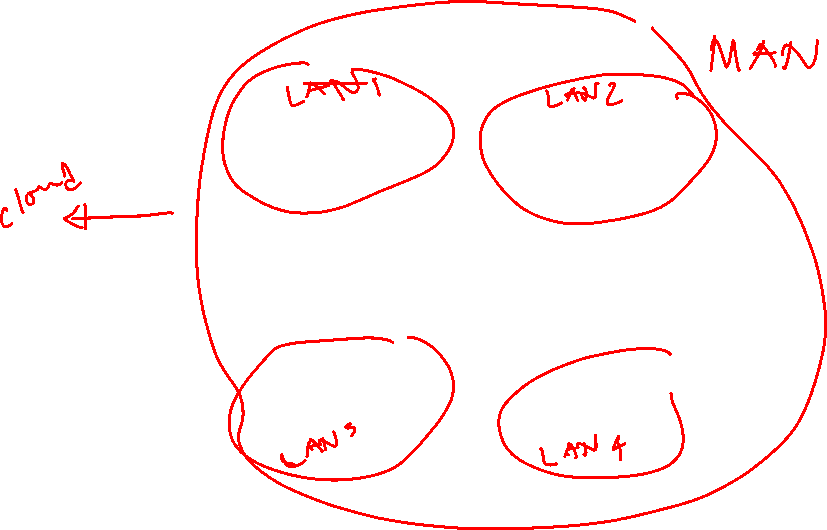 MAN
LAN1
LAN2
cloud
LAN3
LAN4